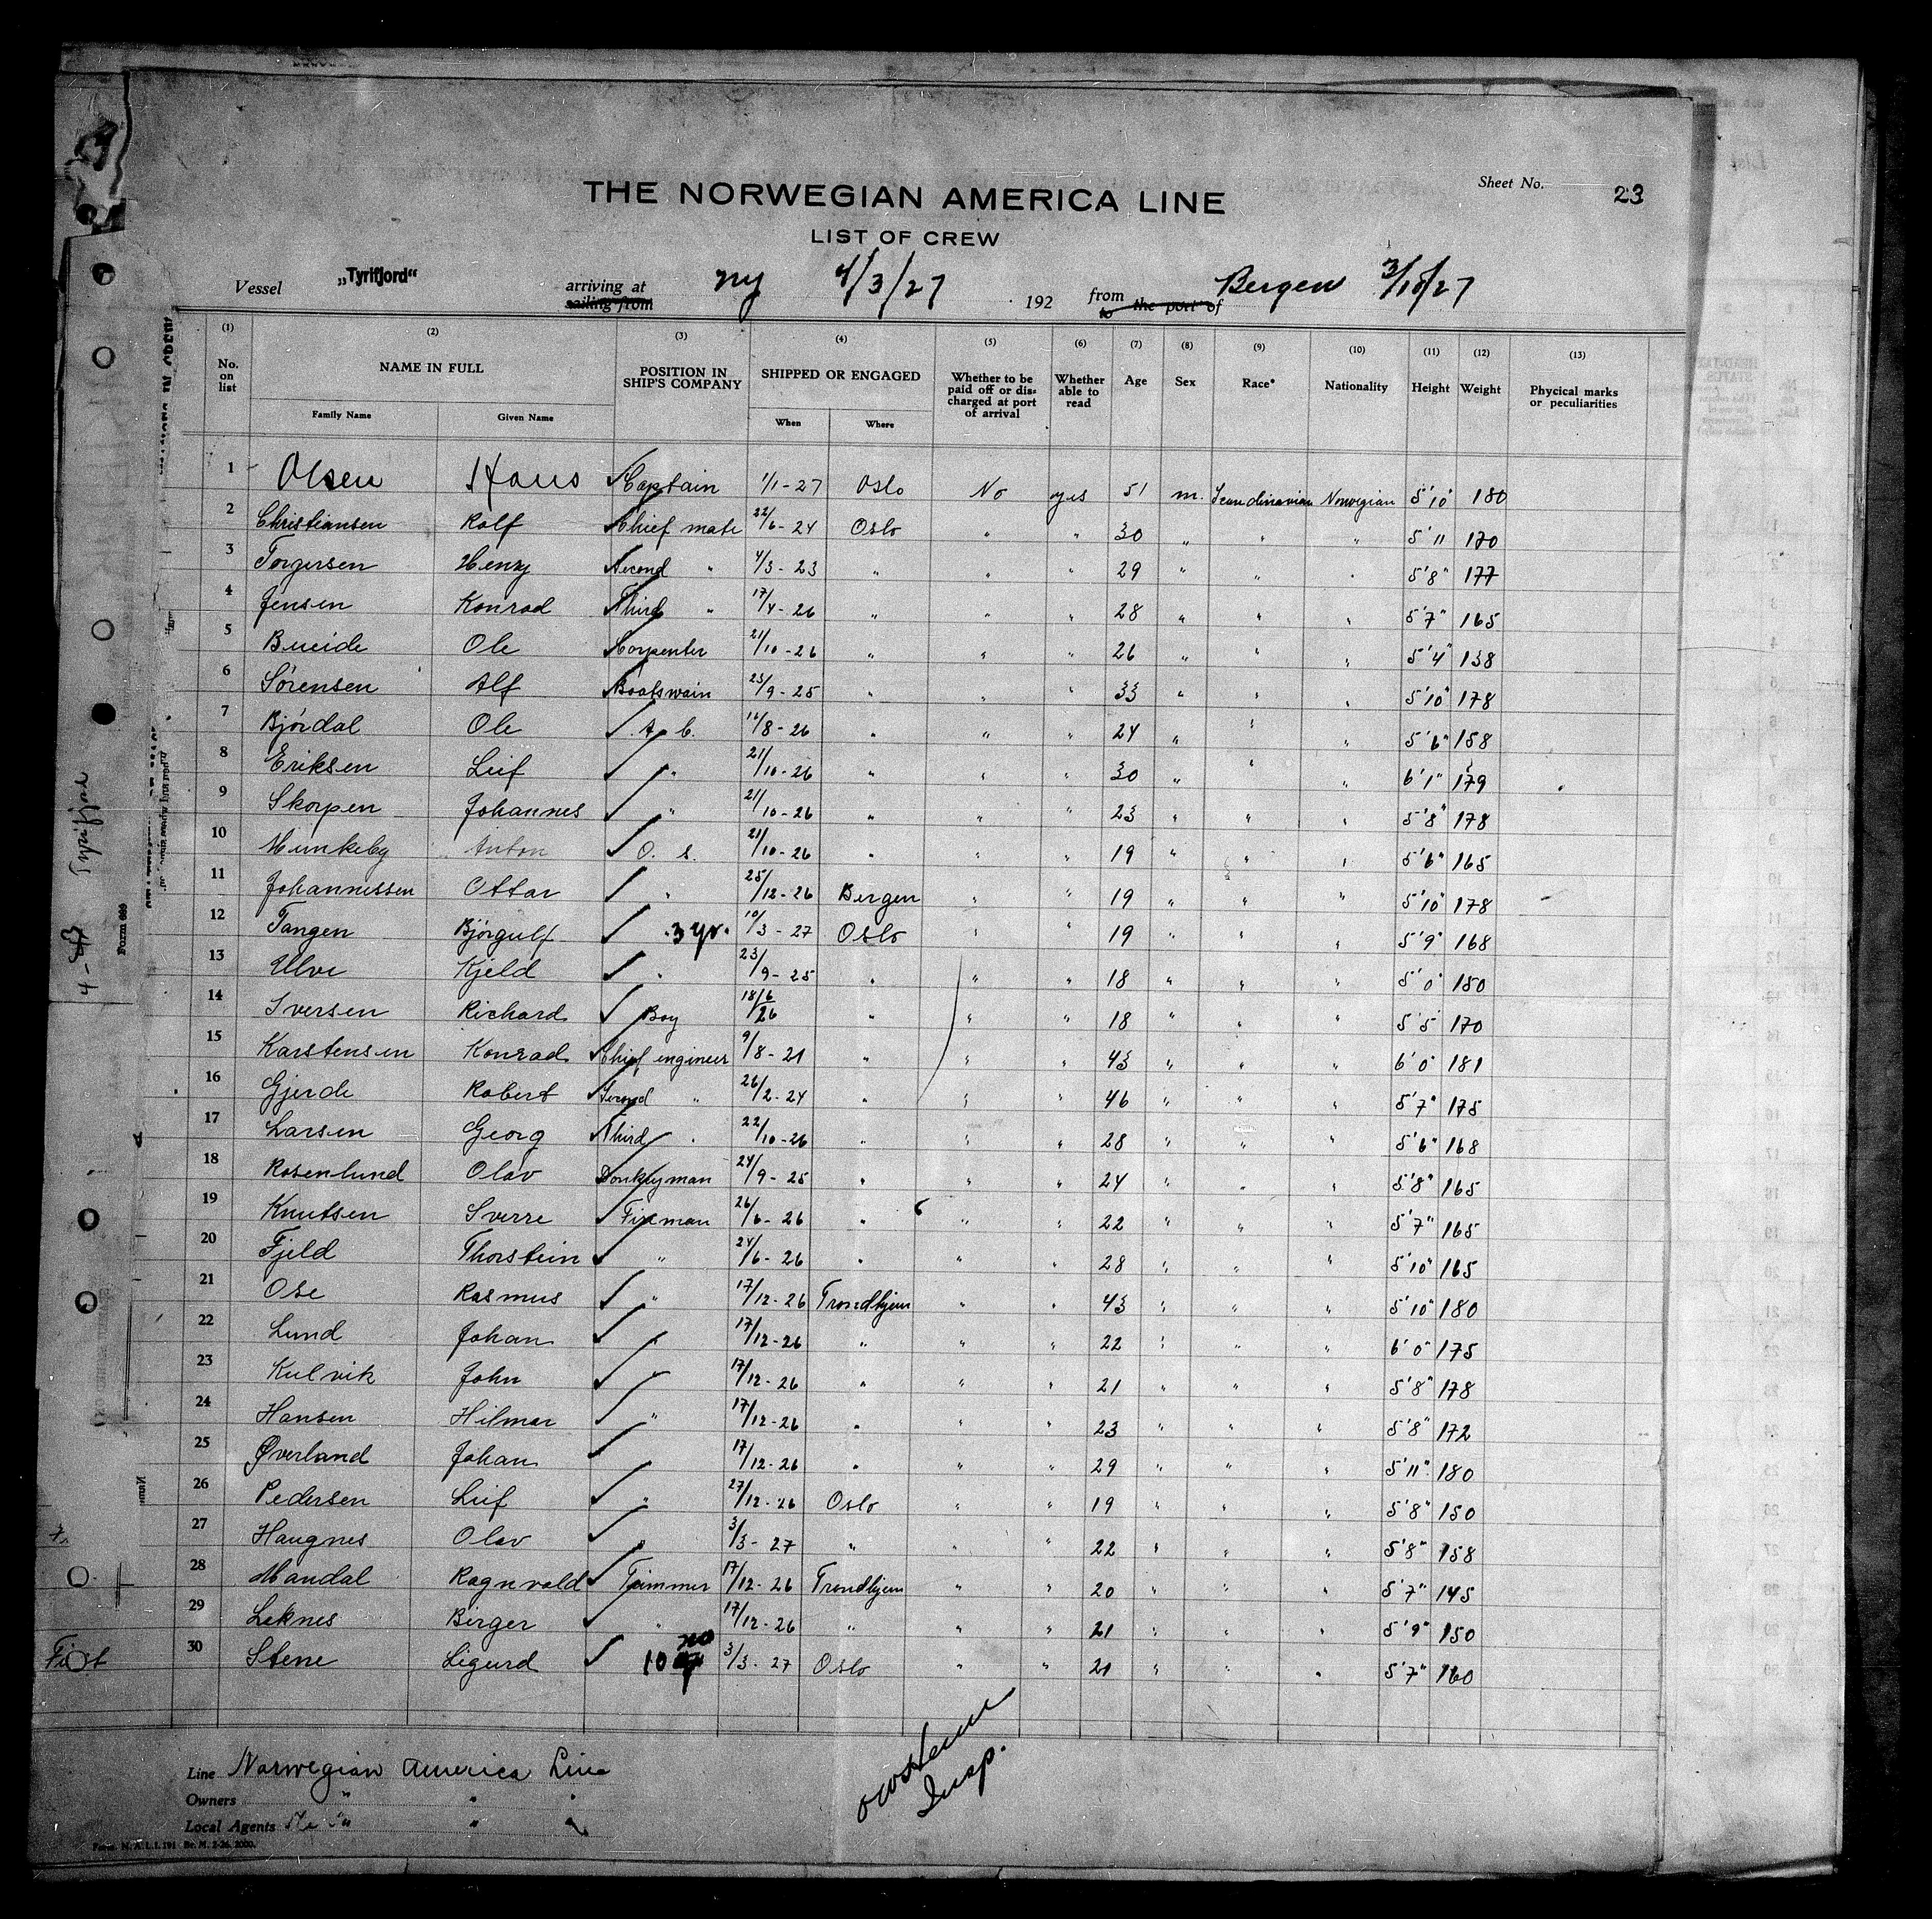 Sheet No. 23
THE NORWEGIAN AMERICA LINE
LIST OF CREW
Vessel „Tyrifjord“ arriving at sailing from ny 4/3/27 192 from to the port of Bergen 3/10/27
(1) (2) (3) (4) (5) (6) (7) (8) (9) (10) (11) (12) (13)
No. on list NAME IN FULL POSITION IN SHIP'S COMPANY SHIPPED OR ENGAGED Whether to be paid off or discharged at port of arrival Whether able to read Age Sex Race* Nationality Height Weight Phycical marks or peculiarities
Family Name Given Name When Where
1 Olsen Hans Captain 1/1-27 Oslo No yes 51 m. Scandinavian Norwegian 5'10" 180
2 Christiansen Rolf Chief mate 22/6-24 Oslo " " 30 " " " 5'11 170
3 Torgersen Henry Second " 4/3-23 " " " 29 " " " 5'8" 177
4 Jensen Konrad Third " 17/4-26 " " " 28 " " " 5'7" 165
5 Bueide Ole Carpenter 21/10-26 " " " 26 " " " 5'4" 138
6 Sörensen Alf Boatswain 23/9-25 " " " 33 " " " 5'10" 178
7 Björdal Ole A. b. 16/8-26 " " " 24 " " " 5'6" 158
8 Eriksen Leif " 21/10-26 " " " 30 " " " 6'1" 179
9 Skorpen Johannes " 21/10-26 " " " 23 " " " 5'8" 178
10 Munkeby Anton O. S. 21/10-26 " " " 19 " " " 5'6" 165
11 Johannessen Ottar " 25/12-26 Bergen " " 19 " " " 5'10" 178
12 Tangen Björgulf " 3 yr. 10/3-27 Oslo " " 19 " " " 5'9" 168
13 Ulve Kjeld " 23/9-25 " " " 18 " " " 5'0" 150
14 Iversen Richard Boy 18/6 26 " " " 18 " " " 5'5" 170
15 Karstensen Konrad Chief engineer 9/8-21 " " " 43 " " " 6'0" 181
16 Gjerde Robert Second " 26/2-24 " " " 46 " " " 5'7" 175
17 Larsen Georg Third " 22/10-26 " " " 28 " " " 5'6" 168
18 Rosenlund Olav Donkeyman 24/9-25 " " " 24 " " " 5'8" 165
19 Knutsen Sverre Fireman 26/6-26 " " " 22 " " " 5'7" 165
20 Fjeld Thorstein " 24/6-26 " " " 28 " " " 5'10" 165
21 Ose Rasmus " 17/12-26 Trondhjem " " 43 " " " 5'10" 180
22 Lund Johan " 17/12-26 " " " 22 " " " 6'0" 175
23 Kulvik John " 17/12-26 " " " 21 " " " 5'8" 178
24 Hansen Hilmar " 17/12-26 " " " 23 " " " 5'8" 172
25 Øverland Johan 17/12-26 " " " 29 " " " 5'11" 180
26 Pedersen Leif " 27/12-26 Oslo " " 19 " " " 5'8" 150
27 Haugnes Olav " 3/3-27 " " " 22 " " " 5'8" 158
28 Mandal Ragnvald Trimmer 17/12-26 Trondhjem " " 20 " " " 5'7" 145
29 Leknes Birger " 17/12-26 " " " 21 " " " 5'9" 150
30 Stene Sigurd 10 3/3-27 Oslo " " 21 " " " 5'7" 160
Insp.
Line Norwegian America Line
Owners " " "
Local Agents " " "
Form. N. A. L. I. 191 Br. M. 2-26. 2000.
Form 689
4- Tyrifjord